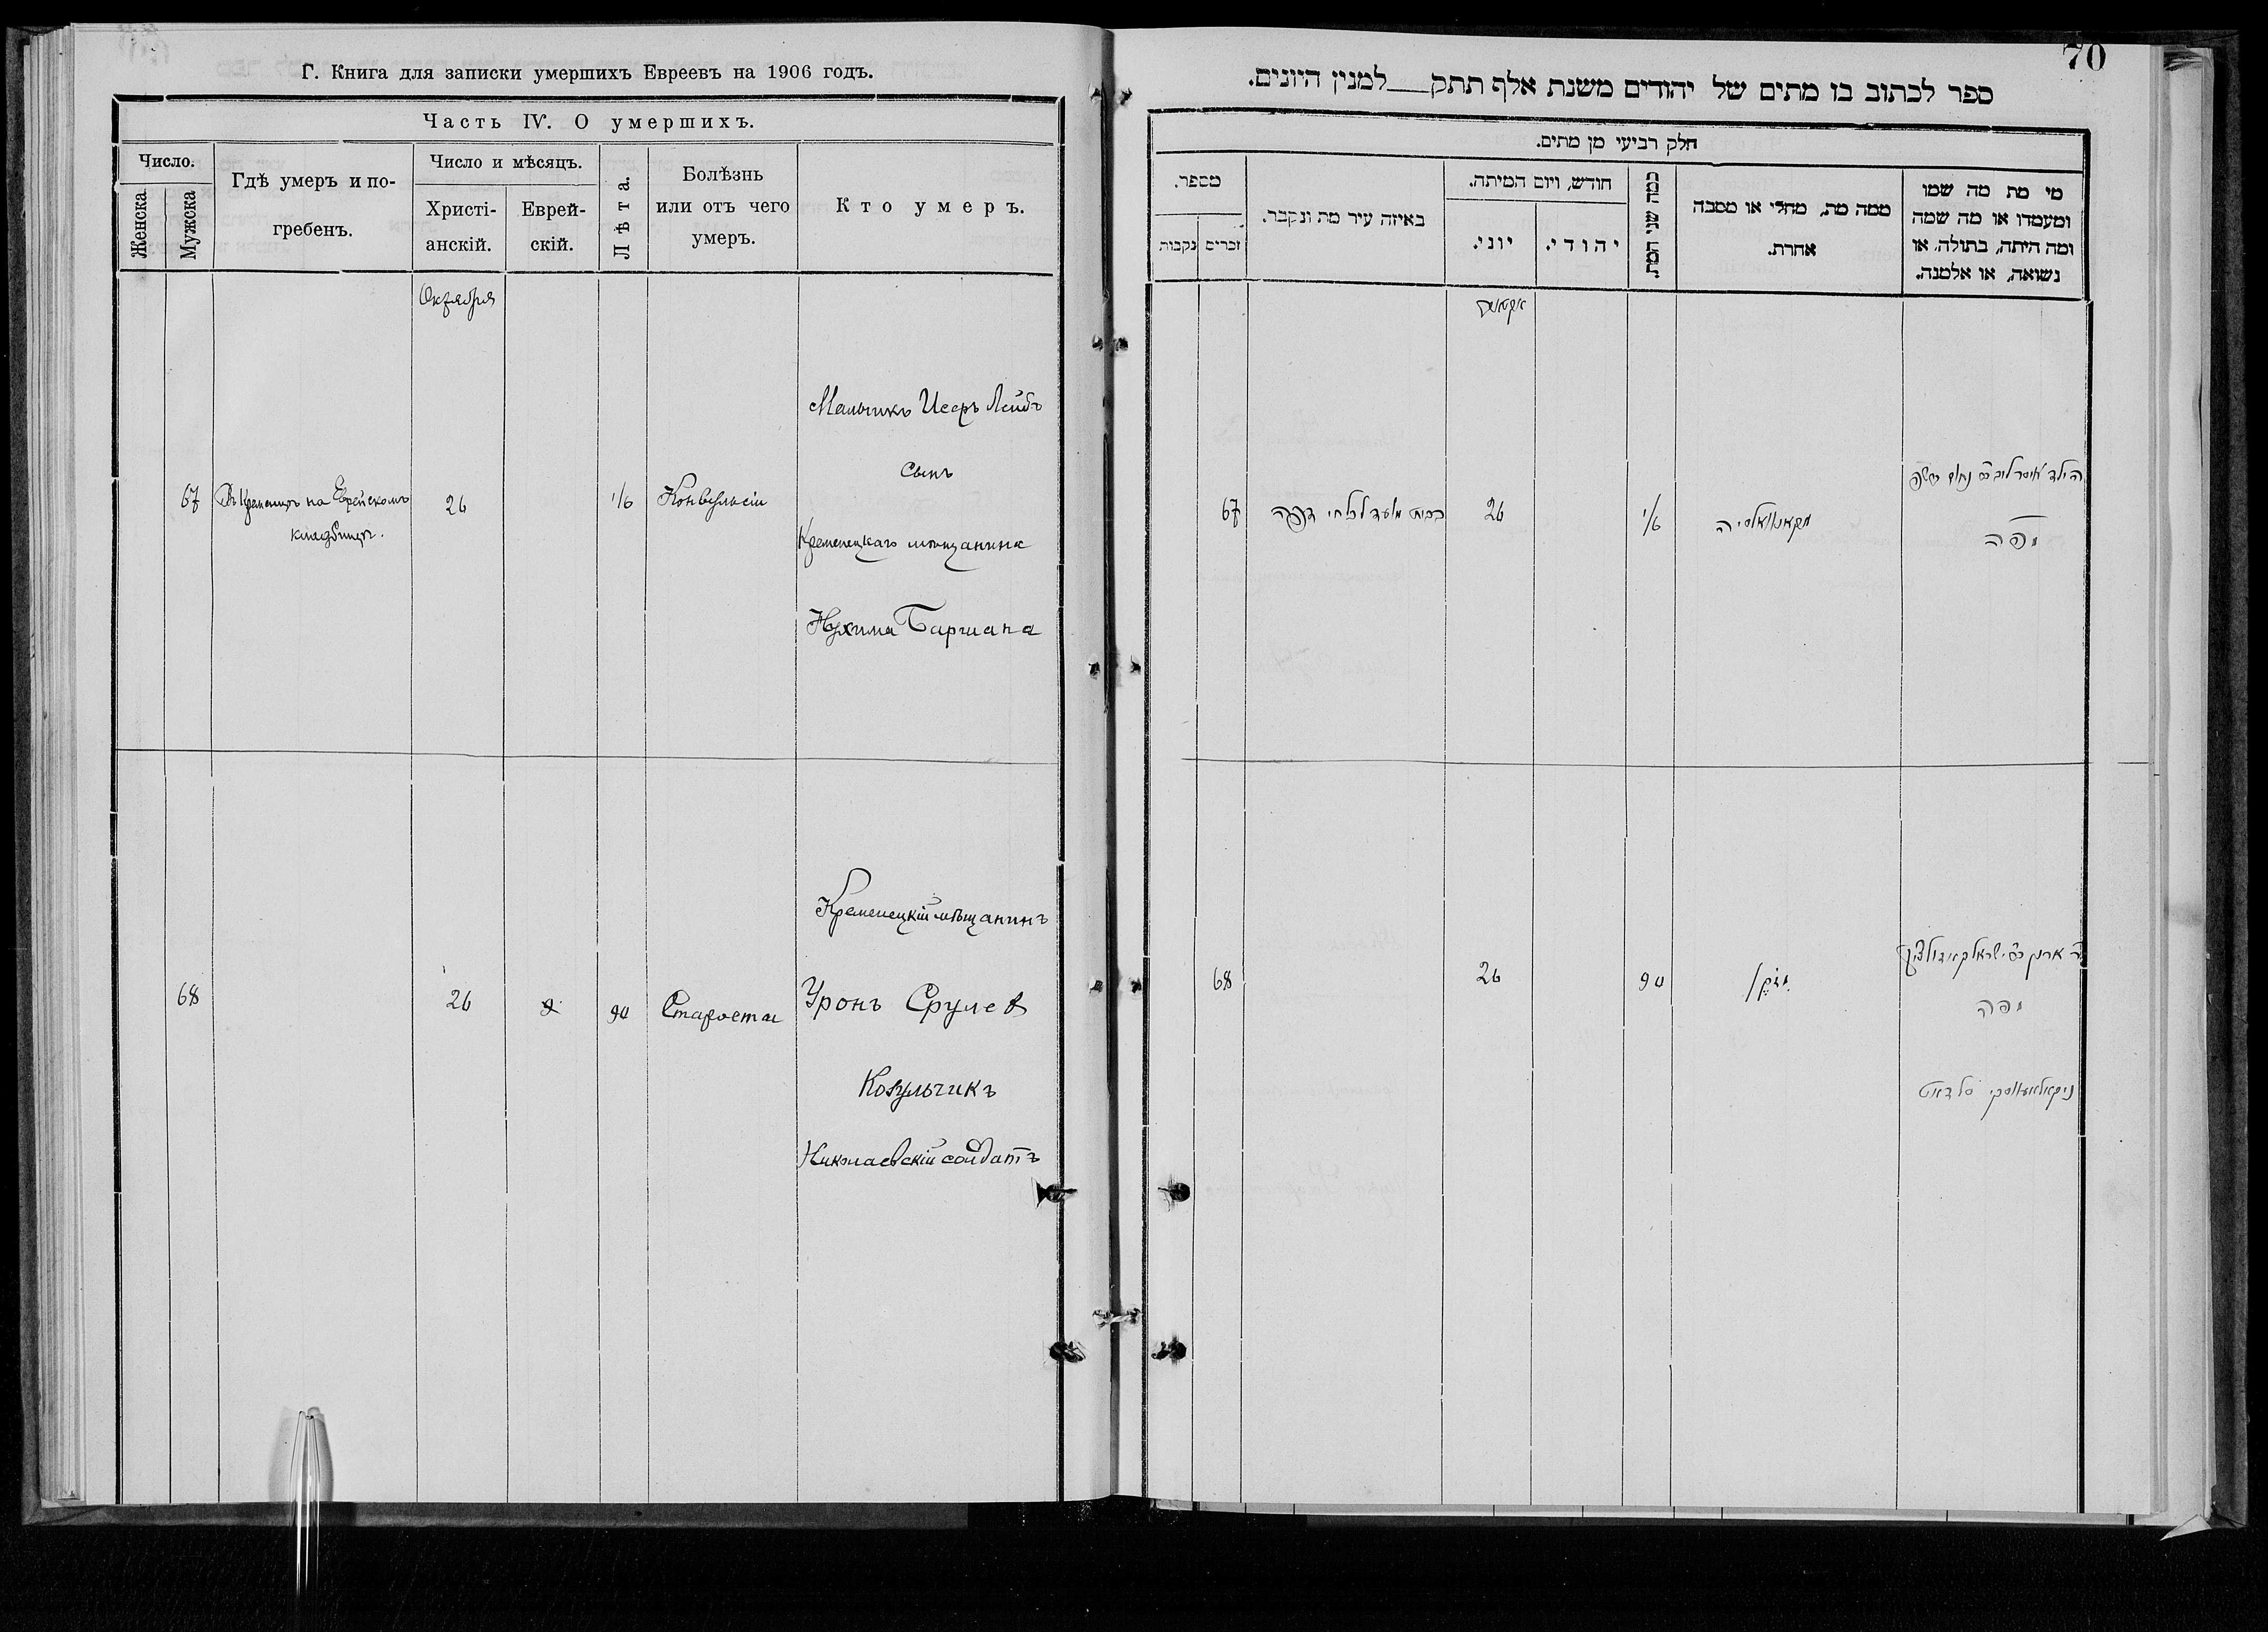 Г. Книга для записки умершихъ Евреевъ на 1906 годъ.
Часть IV. О умершихъ.
Число.
Женска
Мужска
Гдѣ умеръ и по-
гребенъ.
Число и мѣсяцъ.
Христі-
анскій.
Еврей-
скій.
Лѣта.
Болѣзнь
или отъ чего
умеръ.
Кто умеръ.
Октября
67
Въ Кременцѣ на Еврейскомъ
кладбищѣ.
26
1/6
Конвульсіи
Мальчикъ Исеръ Лейбъ
сынъ
Кременецкаго мѣщанина
Нухима Баршапа
68
26
90
Старости
Кременецкій мѣщанинъ
Уронъ Срулев
Козульчикъ
Николаевскій солдатъ
70
ספר לכתוב בו מתים של יהודים משנת אלף תתק למנין היונים.
חלק רביעי מן מתים.
מספר.
נקבות
זכרים
באיזה עיר מת ונקבר.
חודש, ויום המיתה.
יוני.
יהודי.
כמה שני המת.
ממה מת, מחלי או מסבה
אחרת.
מי מת מה שמו
ומעמדו או מה שמה
ומה היתה, בתולה, או
נשואה, או אלמנה.
67
בבית מועד לכל חי דפה
26
1/6
הילד איסר ליב ב נחום
מפה
68
26
90
מזקן
מפה
ניקאלאעווסקי סלדאט